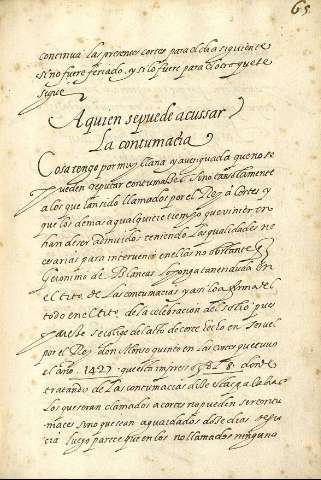 65
continua las presentes cortes para el dia siguiente
si no fuere feriado, y si lo fuere para el otro que se
sigue
A quien se puede acussar
La contumacia
Cosa tengo por muy llana y averiguada que no se
pueden reputar contumaces sino tan solamente
a los que han sido llamados por el Rey a Cortes y
que los demas a qualquiere tiempo que vinieren
han de ser admitidos teniendo las qualidades ne
cesarias para intervenir en ellas no obstante
Geronimo de Blancas lo ponga tan en duda en
el titº de Las contumacias y assi lo afirma el
en el titº de la celebracion del solio pues
se colige del acto de corte hecho en Teruel
por el Rey don Alonso quinto en las cortes que tuvo
el año 1427 que esta impreso fol. 8. donde
tratando de Las contumacias dice
Los que seran clamados a cortes no pueden ser contu
maces sino que sean aguardados doce dias de gra
cia luego parece que en los no llamados ninguno